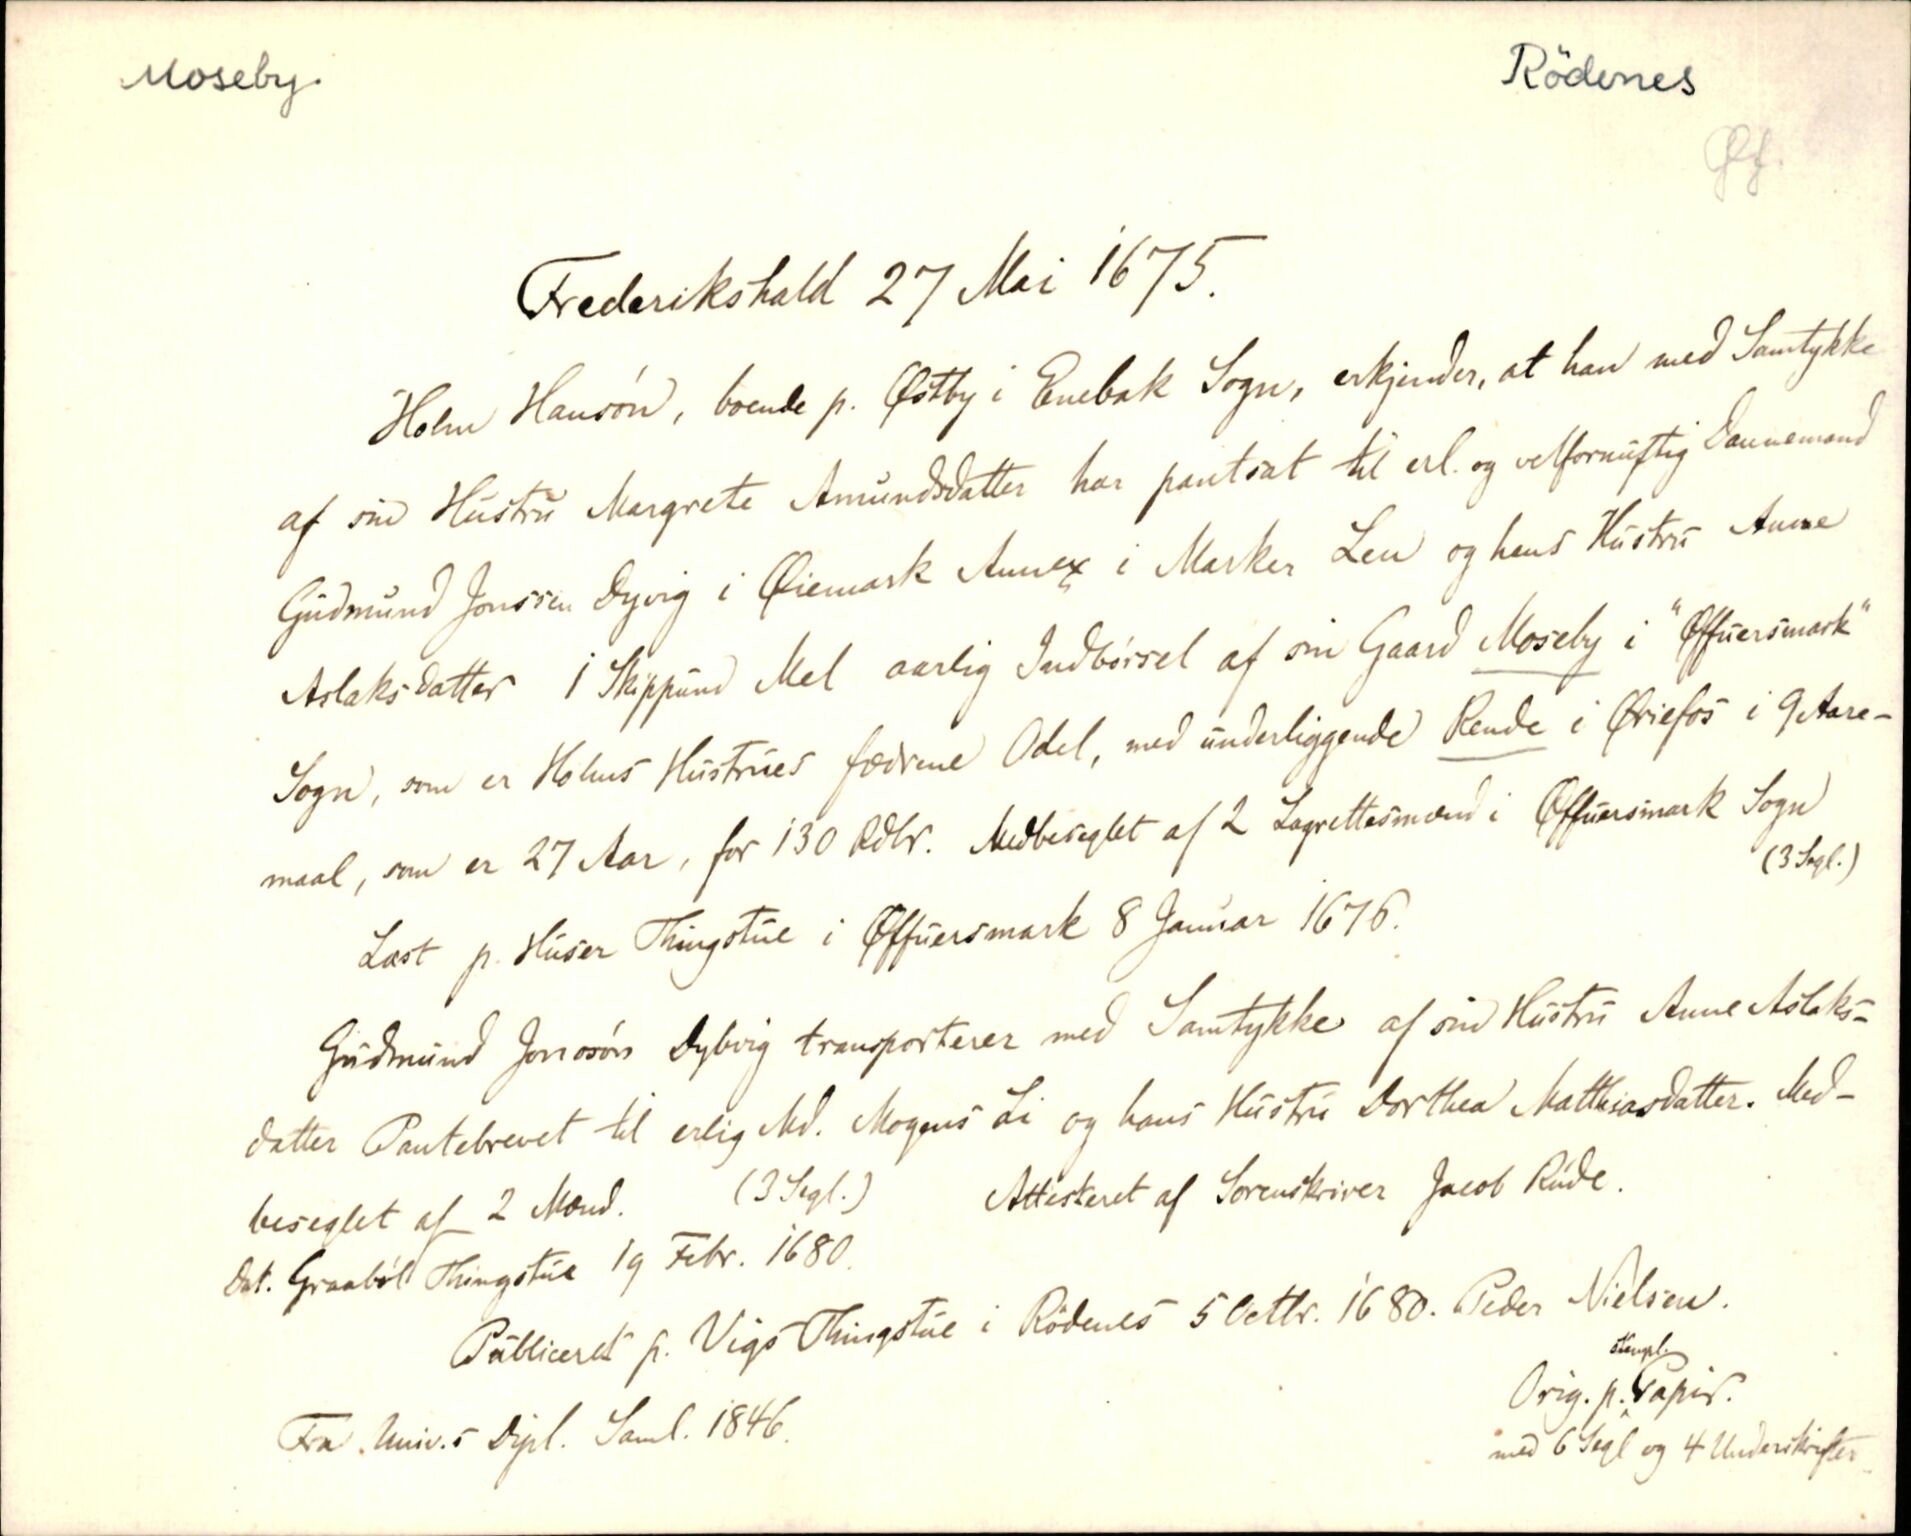 Moseby.
Rödenes
Øf.
Frederikshald 27 Mai 1675.
Holm Hansøn, boende p. Østby i Enebak Sogn, erkjender, at han med Samtykke
af sin Hustru Margrete Amundsdatter har pantsat til erl. og velfornuftig Dannemand
Gudmund Jonssen Dyvig i Øiemark Annex i Marker Len og hans Hustru Anne
Aslaksdatter 1 Skippund Mel aarlig Indbørsel af sin Gaard Moseby i "Øffuersmark"
Sogn, som er Holms Hustrues fædrene Odel, med underliggende Rende i Øriefos i 9 Aare-
maal, som er 27 Aar, for 130 Rdlr. Medbeseglet af 2 Lagrettesmænd i Øffuersmark Sogn
(3 Segl.)
Læst p. Huser Thingstue i Øffuersmark 8 Januar 1676.
Gudmund Jonssøn Dybvig transporterer med Samtykke af sin Hustru Anne Aslaks-
datter Pantebrevet til erlig Md. Mogens Li og hans Hustru Dorthea Matthiasdatter. Med-
beseglet af 2 Mænd. (3 Segl.) Attesteret af Sorenskriver Jacob Rude.
Dat. Graabøl Thingstue 19 Febr. 1680.
Publiceret p. Vigs Thingstue i Rödenes 5 Octbr. 1680. Peder Nielsen.
Orig. p. stempl. Papir.
med 6 Segl og 4 Underskrifter
Fra Univ.s Dipl. Saml. 1846.